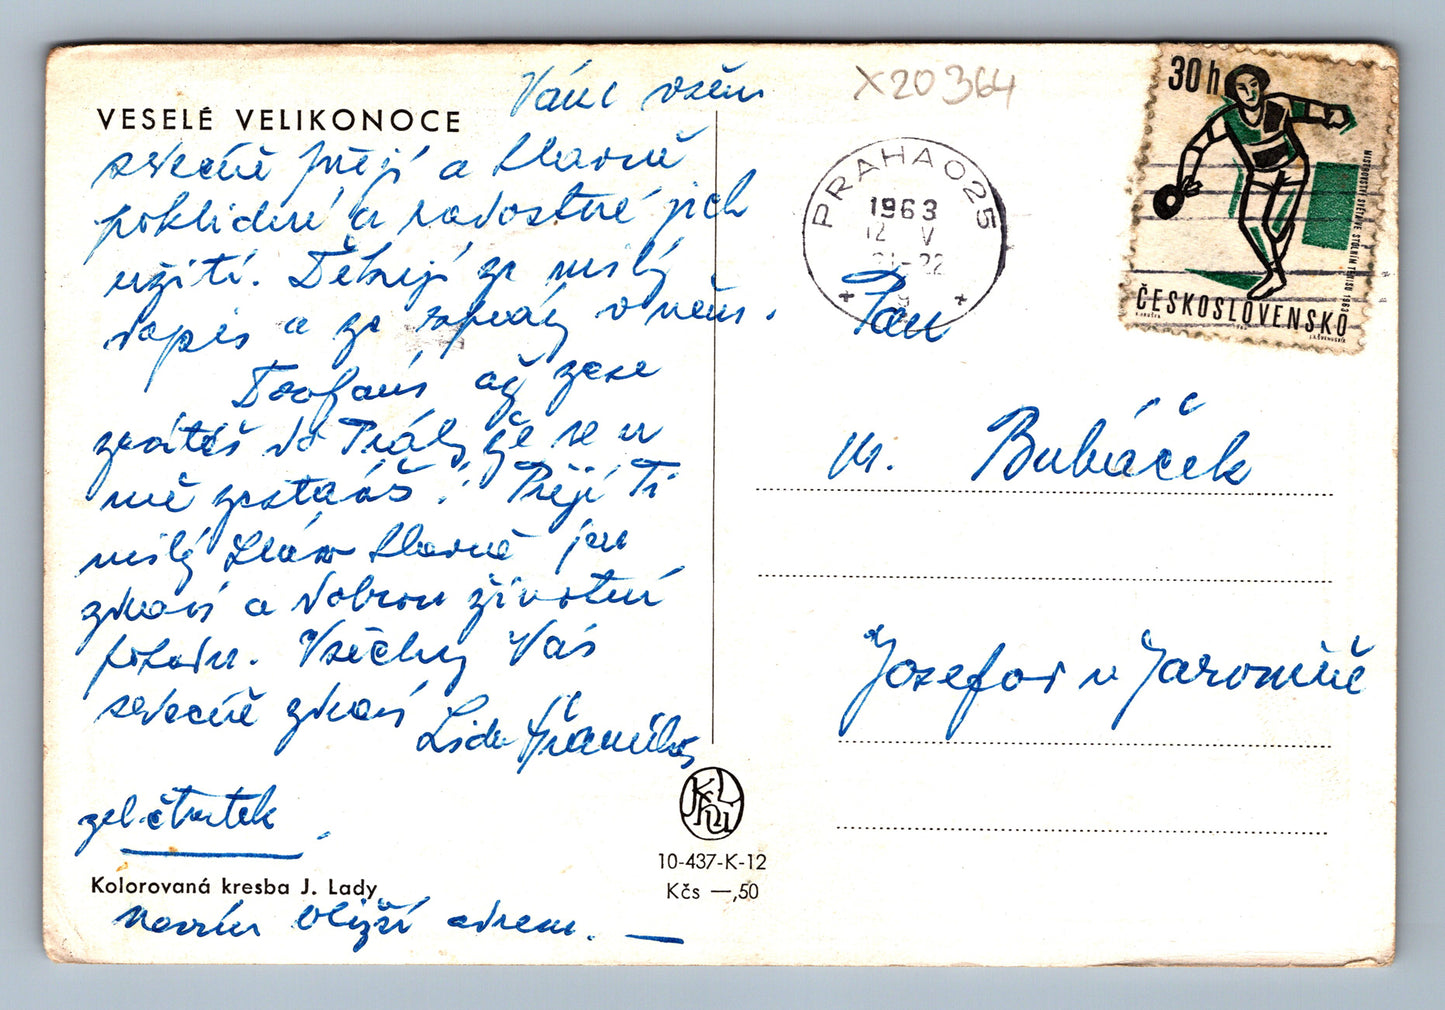 VESELÉ VELIKONOCE
Vám všem
srdečně přeji a hlavně
poklidné a radostné jich
užití. Děkuji za milý
dopis a za zprávy o něm.
Doufám, až zase
zavítáš do Prahy, že se u
mě zastavíš! Přeji Ti
milý hlavně jen
zdraví a dobrou životní
pohodu. Všechny Vás
srdečně zdraví
Lida
zel. čtvrtek
Kolorovaná kresba J. Lady
nevím bližší adresu.
10-437-K-12
Kčs —,50
X20364
PRAHA 025
1963
12 V
21-22
30 h
MISTROVSTVÍ SVĚTA VE STOLNÍM TENISU 1963
ČESKOSLOVENSKO
Pan
M. Bubáček
Josefov u Jaroměře